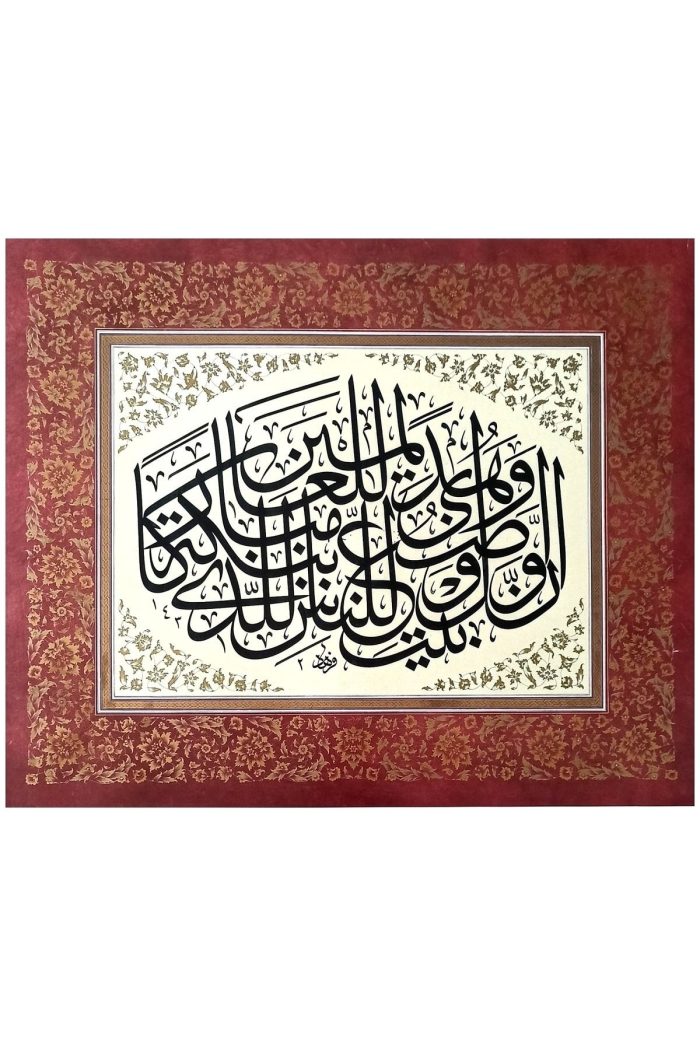 إن أول بيت وضع للناس للذى ببكة مباركا وهدى للعالمين